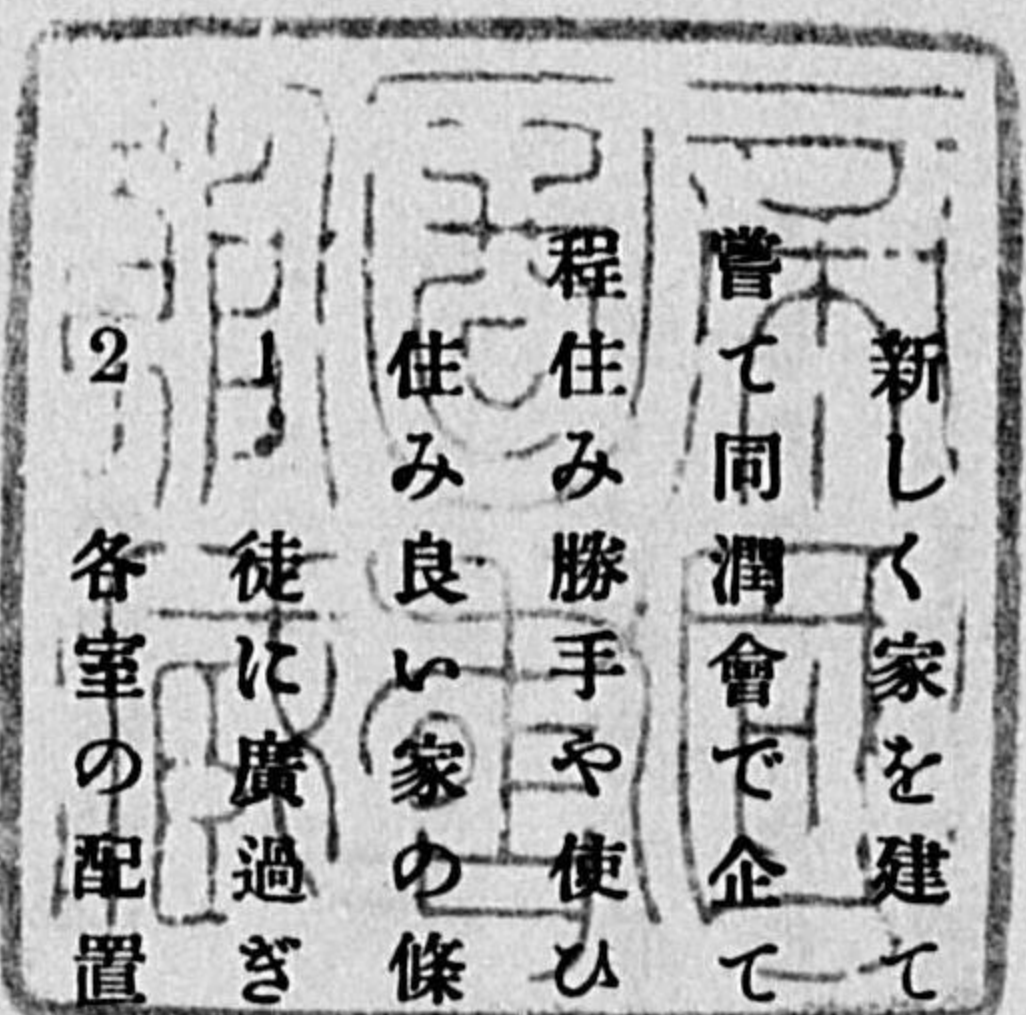 新しく家を建て
嘗て同潤會で企て
程住み勝手や使ひ
住み良い家の條
1 徒に廣過ぎ
2 各室の配置